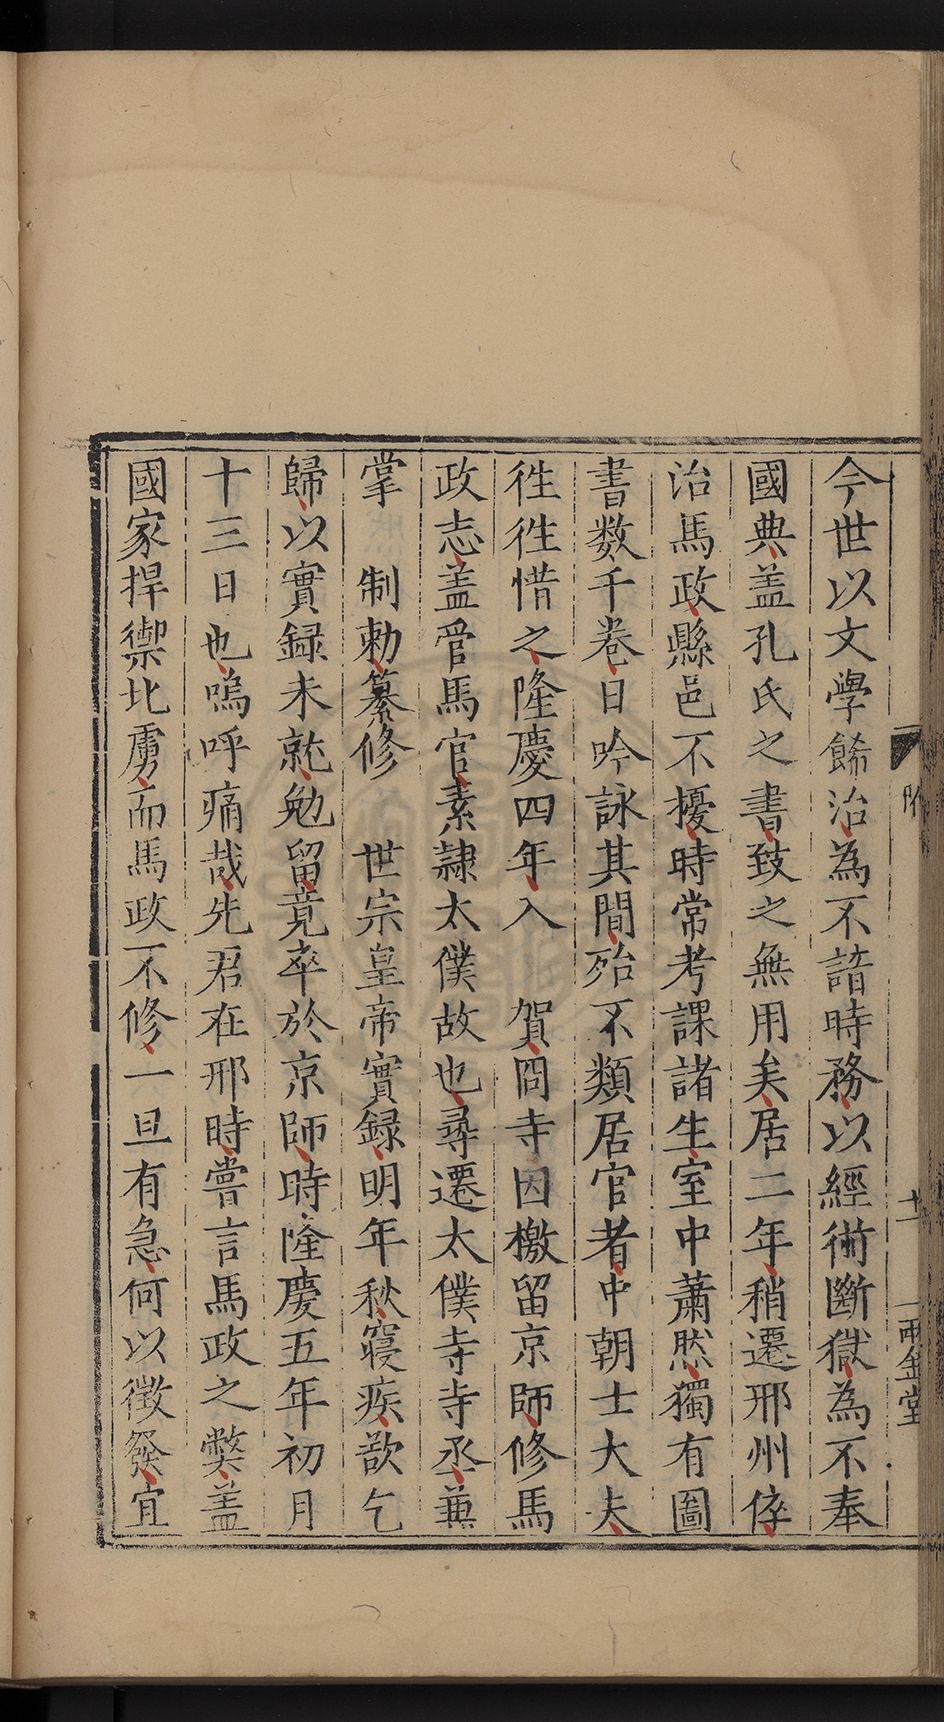 今世以文學餙治為不諳時務以經術斷獄為不奉
國典盖孔氏之書致之無用矣居二年稍遷邢州倅
治馬政縣邑不擾時常考課諸生室中蕭然獨有圖
書数千卷日吟詠其間殆不類居官者中朝士大夫
徃徃惜之隆慶四年入　賀冏寺因檄留京師修馬
政志盖管馬官素隷太僕故也尋遷太僕寺寺丞蕪
掌　制勅纂修　世宗皇帝實録明年秋寢疾欲乞
歸以實録未就勉留竟卒於京師時隆慶五年初月
十三日也嗚呼痛哉先君在邢時嘗言馬政之弊盖
國家捍禦北虜而馬政不修一旦有急何以徴發宜
附
十一
兩金堂